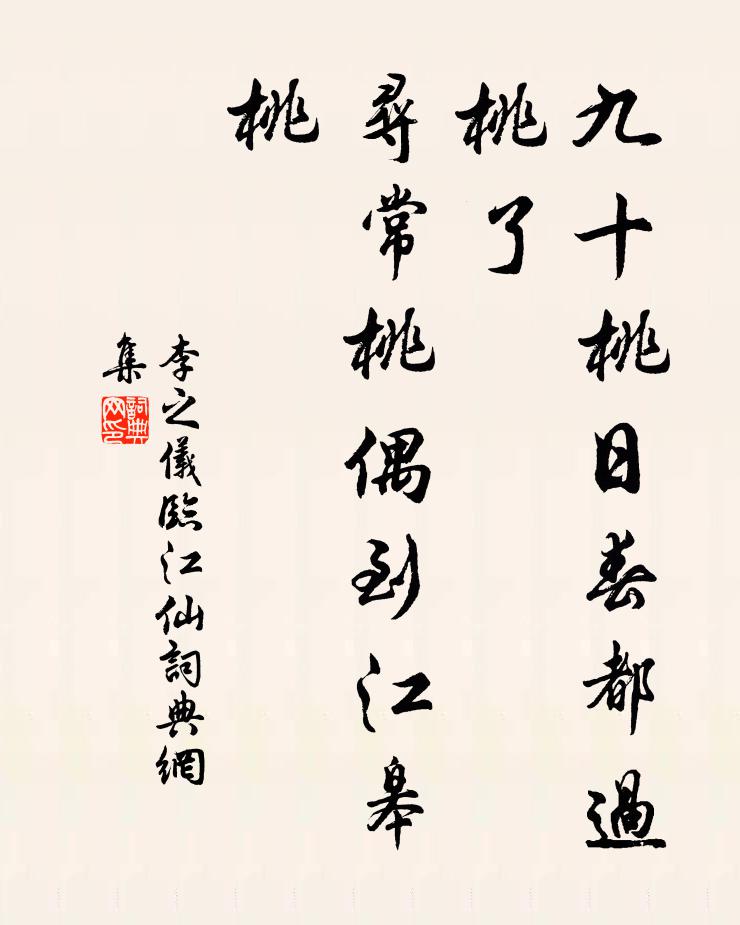 九十桃日春都過
桃了
尋常桃偶到江皋
桃
李之儀臨江仙詞典網
集
詞典
网印